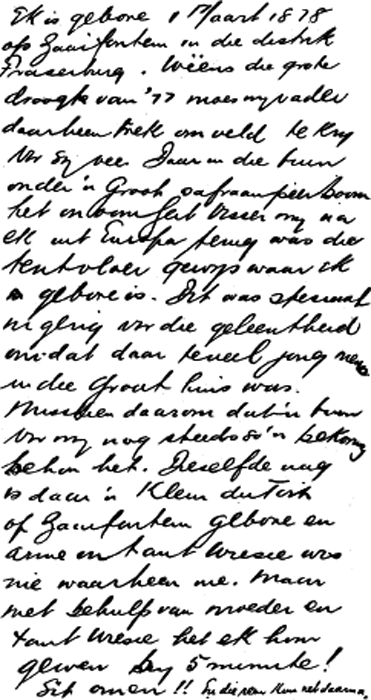 Ek is gebore 1 Maart 1878
op Zaaifontein in die distrik
Fraserburg. Weëns die grote
droogte van '77 moes my vader
daarheen trek om veld te kry
vir sy vee. Daar in die tuin
onder 'n Groot safraanpeerboom
het oom Gert Visser my na
ek uit Europa terug was die
tentvloer gewys waar ek
gebore is. Dit was spesiaal
ingerig vir die geleentheid
omdat daar teveel jong mense
in die Groot huis was.
Miskien daarom dat 'n tuin
vir my nog steeds so 'n bekoring
behou het. Dieselfde nag
is daar 'n Klein du Toit
op Zaaifontein gebore en
arme ou tant Wiesie was
nie waarheen nie. Maar
met behulp van moeder en
tant Wiesie het ek hom
gewen by 5 minute!
Sit omen!! En die reën kom net daarna.